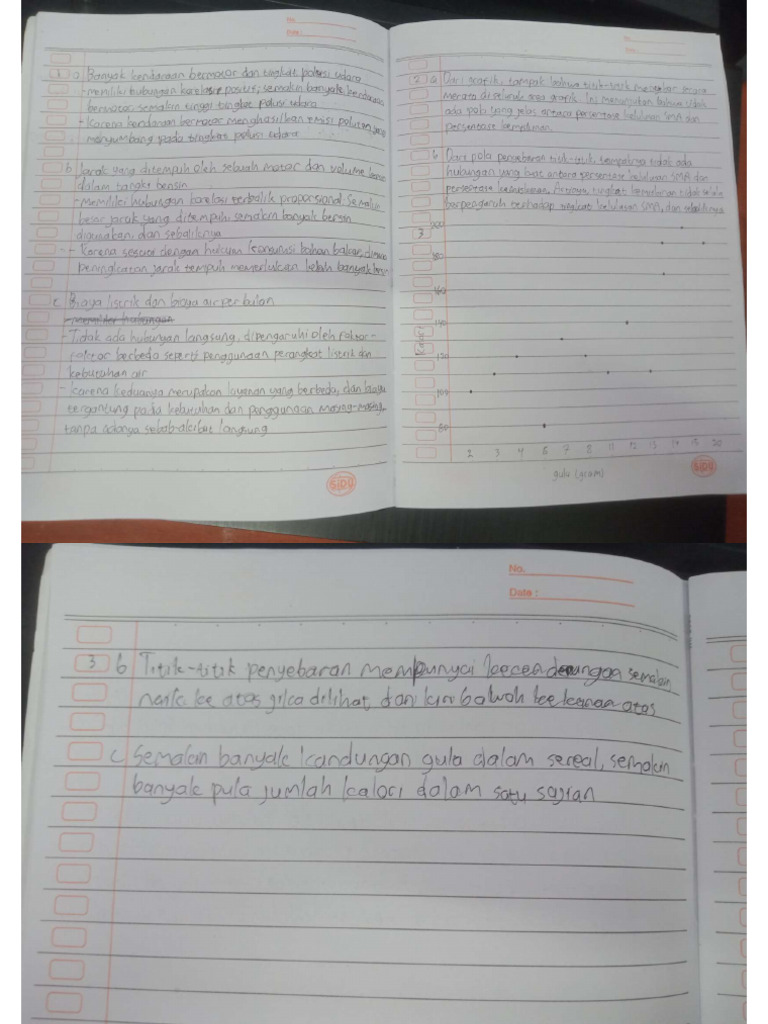 No.
Date :
1 a Banyak kendaraan bermotor dan tingkat polusi udara
- memiliki hubungan korelasi positif; semakin banyak kendaraan
bermotor semakin tinggi tingkat polusi udara
- Karena kendaraan bermotor menghasilkan emisi polutan yang
menyumbang pada tingkat polusi udara
b Jarak yang ditempuh oleh sebuah motor dan volume
dalam tangki bensin
- memiliki hubungan korelasi terbalik proporsional. Semakin
besar jarak yang ditempuh semakin banyak bensin
digunakan, dan sebaliknya
- Karena sesuai dengan hukum konsumsi bahan bakar, dimana
peningkatan jarak tempuh memerlukan lebih banyak
c Biaya listrik dan biaya air perbulan
- Memiliki hubungan
- Tidak ada hubungan langsung, dipengaruhi oleh faktor-
faktor berbeda seperti penggunaan perangkat listrik dan
kebutuhan air
- Karena keduanya merupakan layanan yang berbeda, dan biaya
tergantung pada kebutuhan dan penggunaan masing-masing,
tanpa adanya sebab-akibat langsung
SIDU
No.
Date :
2 a Dari grafik, tampak bahwa titik-titik menyebar secara
merata di seluruh area grafik. Ini menunjukan bahwa tidak
ada pola yang jelas antara persentase kelulusan SMA dan
persentase kemiskinan.
b Dari pola penyebaran titik-titik, tampaknya tidak ada
hubungan yang kuat antara persentase kelulusan SMA dan
persentase kemiskinan. Artinya, tingkat kemiskinan tidak selalu
berpengaruh terhadap tingkat kelulusan SMA, dan sebaliknya
3
200
180
160
140
120
100
80
Kalori
2 3 4 6 7 8 11 12 13 14 15 20
gula (gram)
SIDU
No.
Date :
3 b Titik-titik penyebaran mempunyai kecenderungan semakin
naik ke atas jika dilihat dari kiri bawah ke kanan atas
c Semakin banyak kandungan gula dalam sereal, semakin
banyak pula jumlah kalori dalam satu sajian